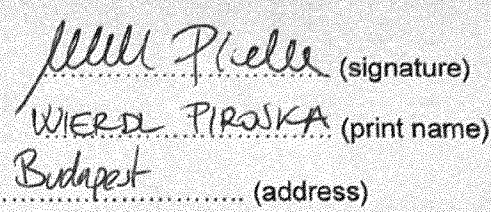 (signature)
WIERDL PIROSKA (print name)
Budapest (address)